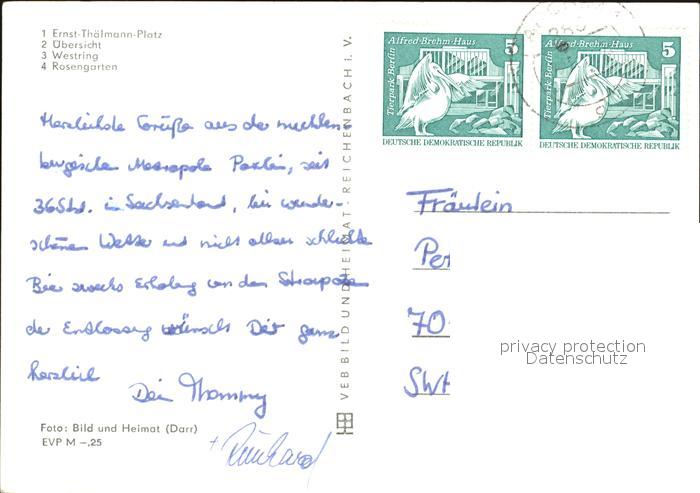 1 Ernst-Thälmann-Platz
2 Übersicht
3 Westring
4 Rosengarten
Herzlichste Grüße aus der mecklen-
burgischen Metropole, seit
36 Std. in Sachsenland, bei wunder-
schönem Wetter und nicht allzu schlechtem
Bier zwecks Erholung von den Strapazen
der Entlassung wünscht Dir ganz
herzlich
Dein Thommy
+ Reinhard
Foto: Bild und Heimat (Darr)
EVP M –,25
VEB BILD UND HEIMAT REICHENBACH i. V.
Tierpark Berlin
Alfred-Brehm-Haus
5
DEUTSCHE DEMOKRATISCHE REPUBLIK
Tierpark Berlin
Alfred-Brehm-Haus
5
DEUTSCHE DEMOKRATISCHE REPUBLIK
Fräulein
Per
70
privacy protection
Datenschutz